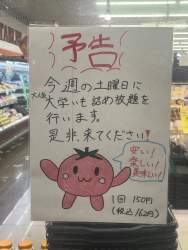 予告
今週の土曜日に
大人気
大学いも詰め放題を
行います。
是非、来てください!
安い!
楽しい!
美味しい!
1回 150円
(税込162円)